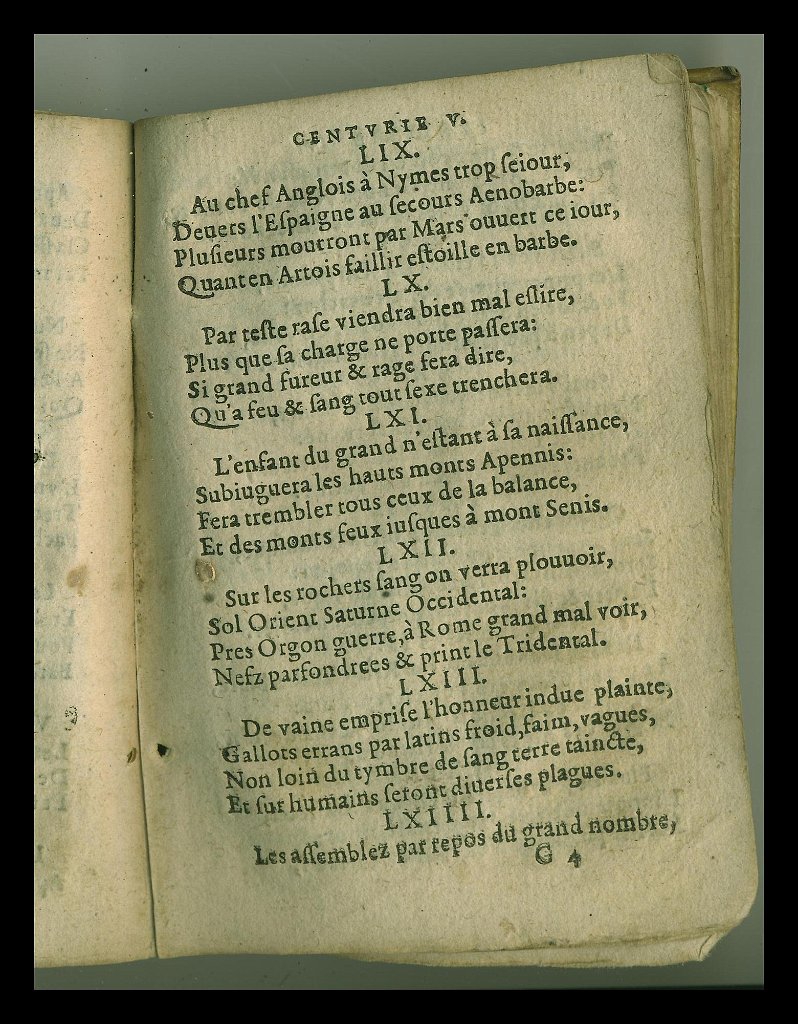 CENTVRIE V.
LIX.
Au chef Anglois à Nymes trop ſeiour,
Deuers l'Eſpaigne au ſecours Aenobarbe:
Pluſieurs mourront par Mars ouuert ce iour,
Quant en Artois faillir eſtoille en barbe.
LX.
Par teſte raſe viendra bien mal eſlire,
Plus que ſa charge ne porte paſſera:
Si grand fureur & rage fera dire,
Qu'a feu & ſang tout ſexe trenchera.
LXI.
L'enfant du grand n'eſtant à ſa naiſſance,
Subiuguera les hauts monts Apennis:
Fera trembler tous ceux de la balance,
Et des monts feux iuſques à mont Senis.
LXII.
Sur les rochers ſang on verra plouuoir,
Sol Orient Saturne Occidental:
Pres Orgon guerre, à Rome grand mal voir,
Nefz parfondrees & print le Tridental.
LXIII.
De vaine empriſe l'honneur indue plainte,
Gallots errans par latins froid, faim, vagues,
Non loin du tymbre de ſang terre taincte,
Et ſur humains ſeront diuerſes plagues.
LXIIII.
Les aſſemblez par repos du grand nombre,
G 4